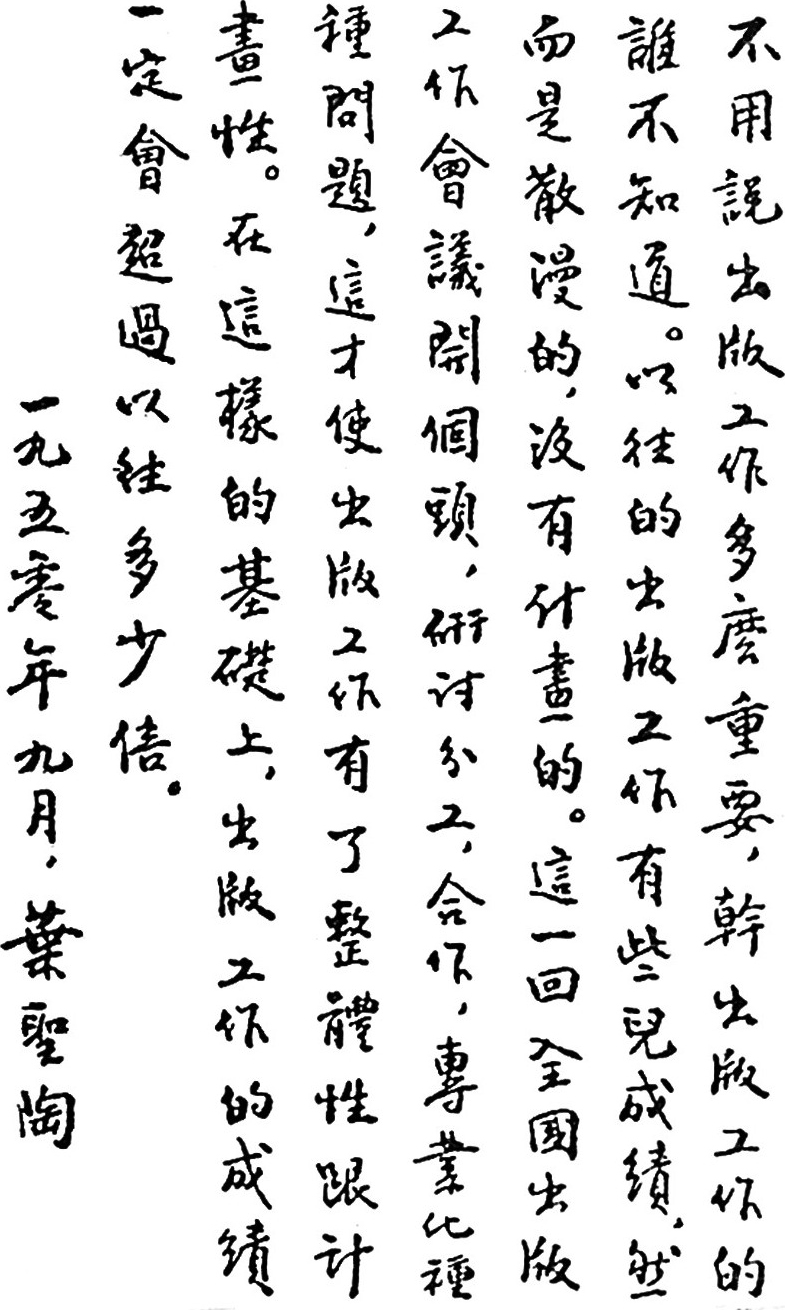 不用說出版工作多麽重要，幹出版工作的
誰不知道。以往的出版工作有些兒成績，然
而是散漫的，没有計畫的。這一回全國出版
工作會議開個頭，研討分工，合作，專業化種
種問題，這才使出版工作有了整體性跟計
畫性。在這樣的基礎上，出版工作的成績
一定會超過以往多少倍。
一九五零年九月，葉聖陶